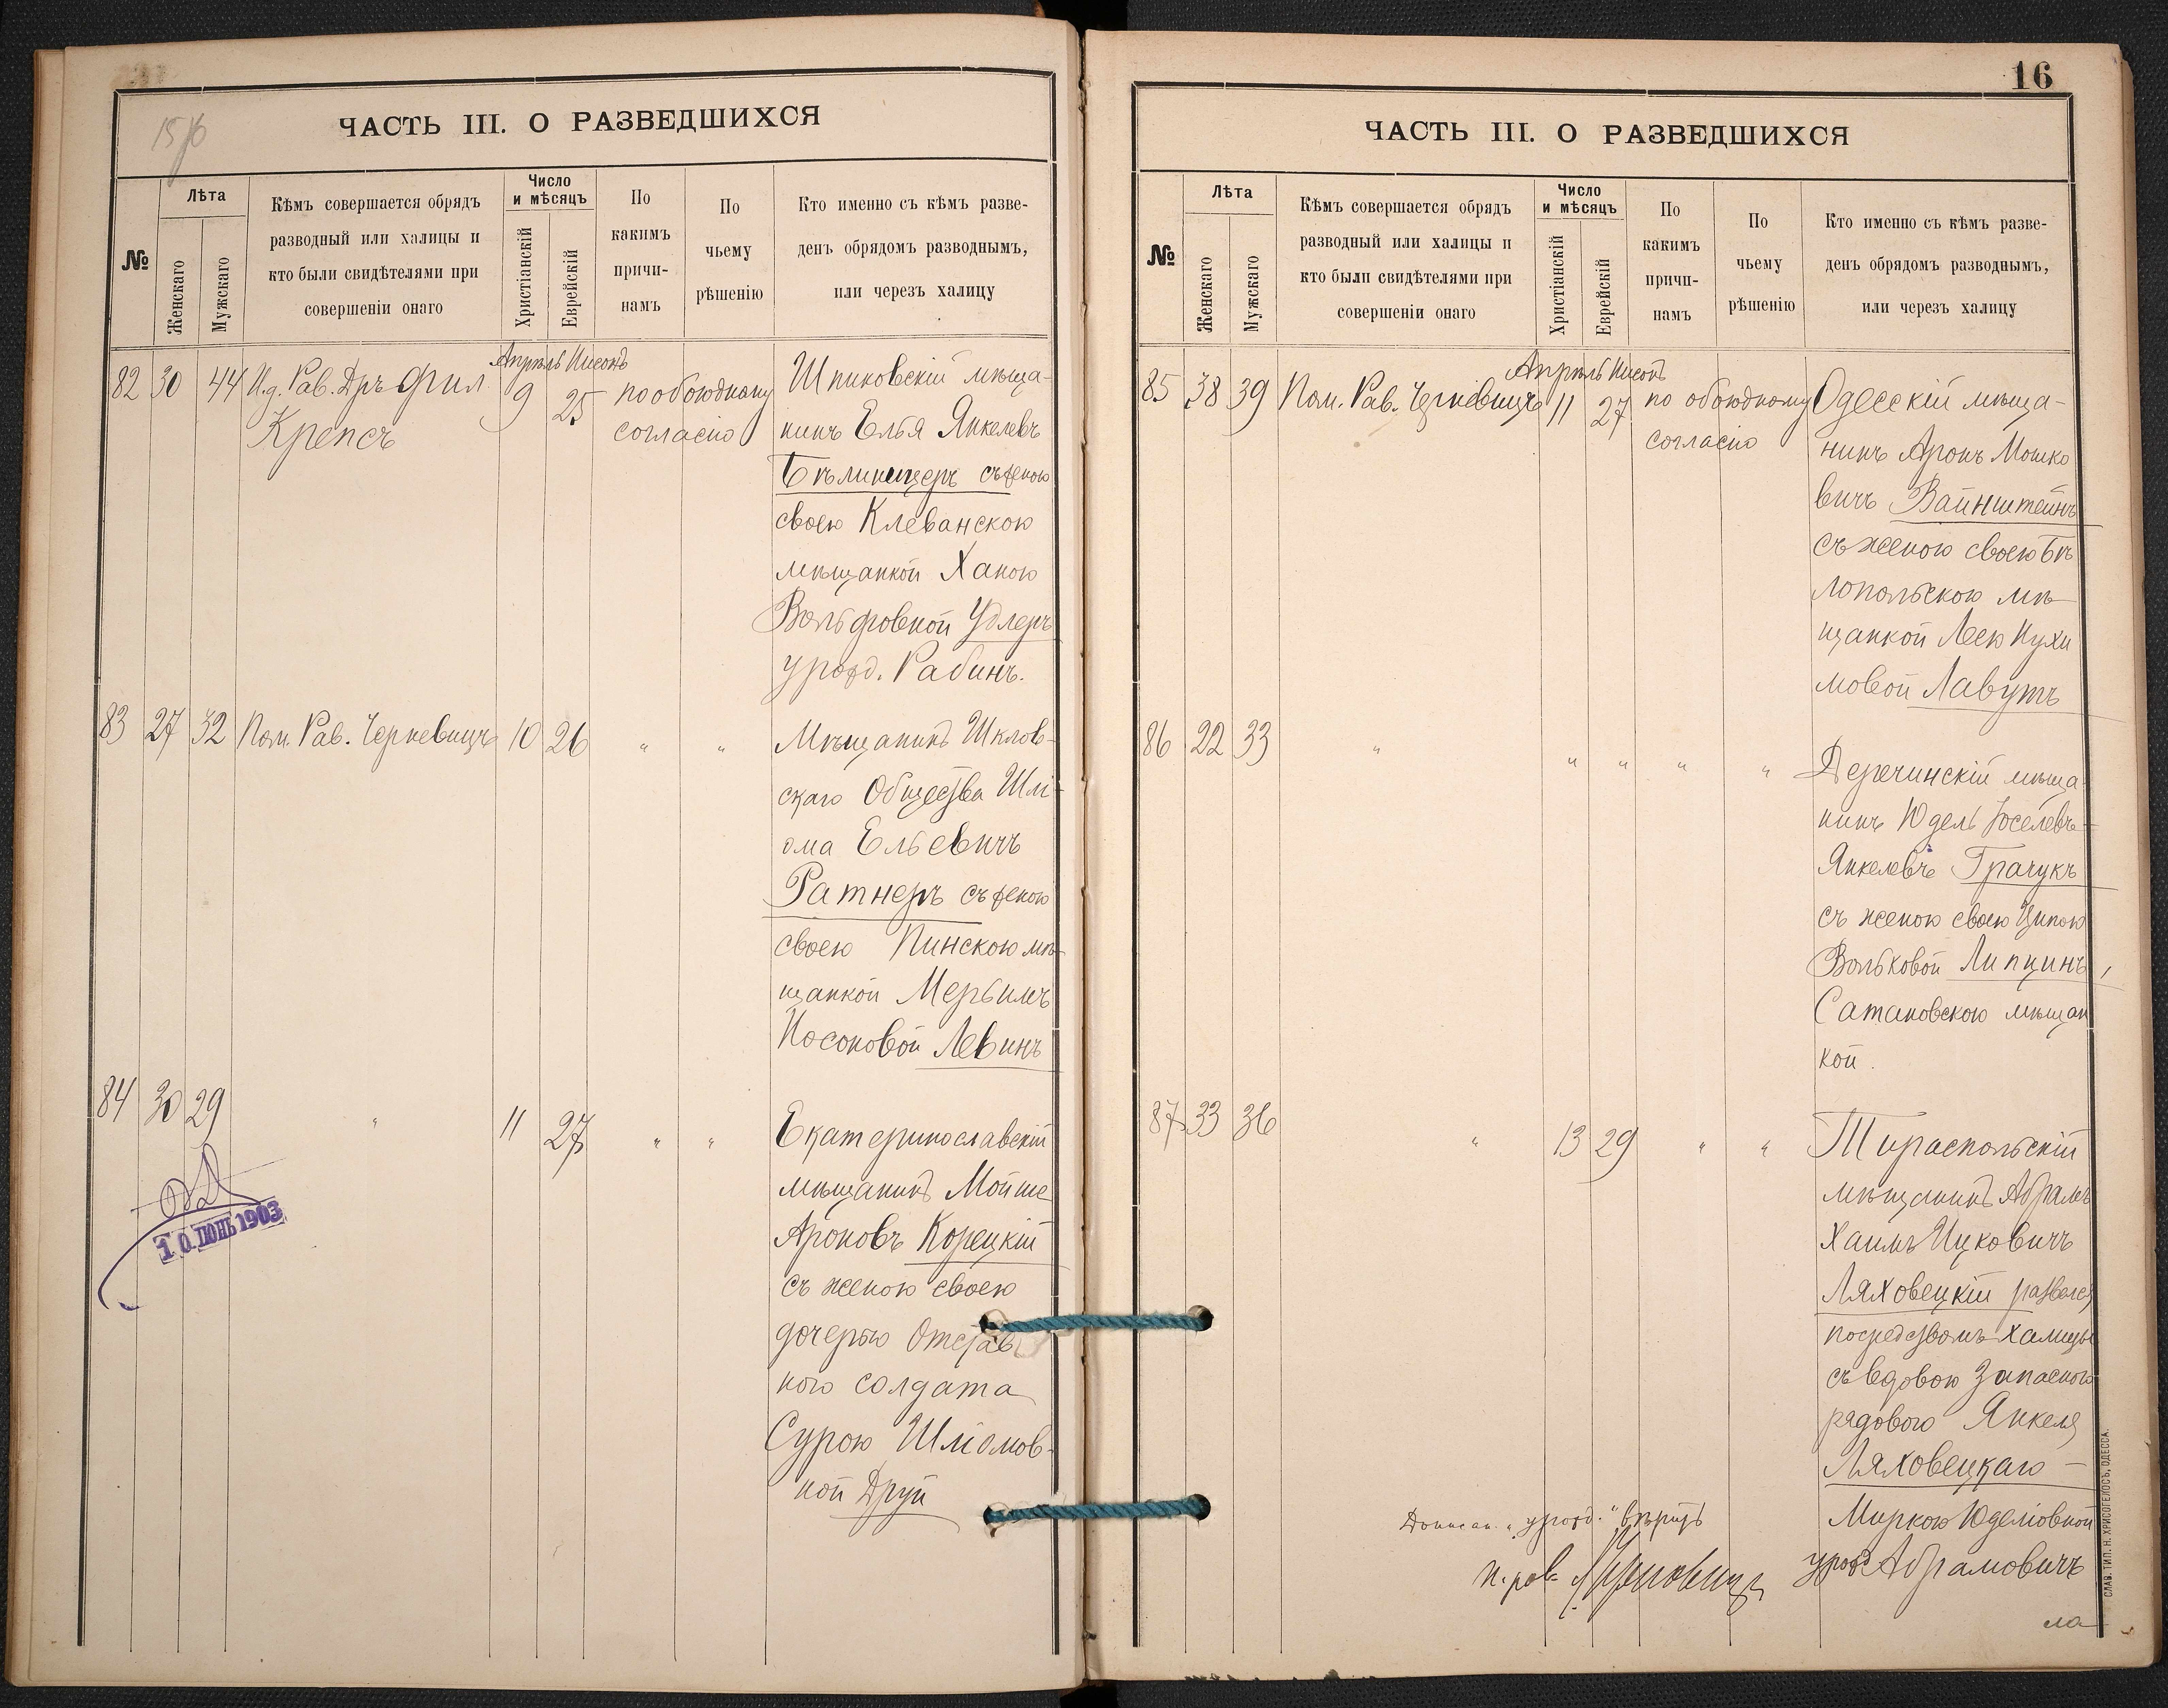 15/16
ЧАСТЬ III. О РАЗВЕДШИХСЯ
№
Лѣта
Женскаго
Мужскаго
Кѣмъ совершается обрядъ
разводный или халицы и
кто были свидѣтелями при
совершеніи онаго
Число
и мѣсяцъ
Христіанскій
Еврейскій
По
какимъ
причи-
намъ
По
чьему
рѣшенію
Кто именно съ кѣмъ разве-
денъ обрядомъ разводнымъ,
или черезъ халицу
Апрѣль Нисонъ
82 30 44 И.д. Рав. Дръ Фил. Крепсъ 9 25 по обоюдному согласію
Шпиковскій мѣща-
нинъ Елья Янкелевъ
Бѣлинцеръ съ женою
своею Клеванскою
мѣщанкой Ханою
Вольфовной Удлеръ
урожд. Рабинъ.
83 27 32 Пом. Рав. Черкевицъ 10 26 " "
Мѣщанинъ Шклов-
скаго Общества Шлі-
ома Ельевичъ
Ратнеръ съ женою
своею Пинскою мѣ-
щанкой Мерьимъ
Носоновой Левинъ
84 30 29 " 11 27 " "
Екатеринославскій
мѣщанинъ Мойше
Ароновъ Корецкій
съ женою своею
дочерью Отстав
ного солдата
Сурою Шліомов-
ной Друй
10 ІЮНЬ 1903
16
ЧАСТЬ III. О РАЗВЕДШИХСЯ
№
Лѣта
Женскаго
Мужскаго
Кѣмъ совершается обрядъ
разводный или халицы и
кто были свидѣтелями при
совершеніи онаго
Число
и мѣсяцъ
Христіанскій
Еврейскій
По
какимъ
причи-
намъ
По
чьему
рѣшенію
Кто именно съ кѣмъ разве-
денъ обрядомъ разводнымъ,
или черезъ халицу
Апрѣль Нисонъ
85 38 39 Пом. Рав. Черкевицъ 11 27 по обоюдному согласію
Одесскій мѣща-
нинъ Аронъ Мошко
вичъ Вайнштейнъ
съ женою своею Бѣ
лопольскою мѣ-
щанкой Леею Нухи
мовой Лавутъ
86 22 33 " " " " "
Деречинскій мѣща
нинъ Юдель Іоселевъ-
Янкелевъ Грачукъ
съ женою своею Ципою
Вольковой Липцинъ,
Сатановскою мѣщан
кой.
87 33 36 " 13 29 " "
Тираспольскій
мѣщанинъ Абрамъ
Хаимъ Ицковичъ
Ляховецкій развелся
посредствомъ халицы
съ вдовою Запасного
рядового Янкеля
Ляховецкаго -
Миркою Юделіовной
урожд. Абрамовичъ
Дописан. "урожд." вѣрить
п. рав.
ла
СЛАВ. ТИП. Н. ХРИСОГЕЛОСЪ, ОДЕССА.